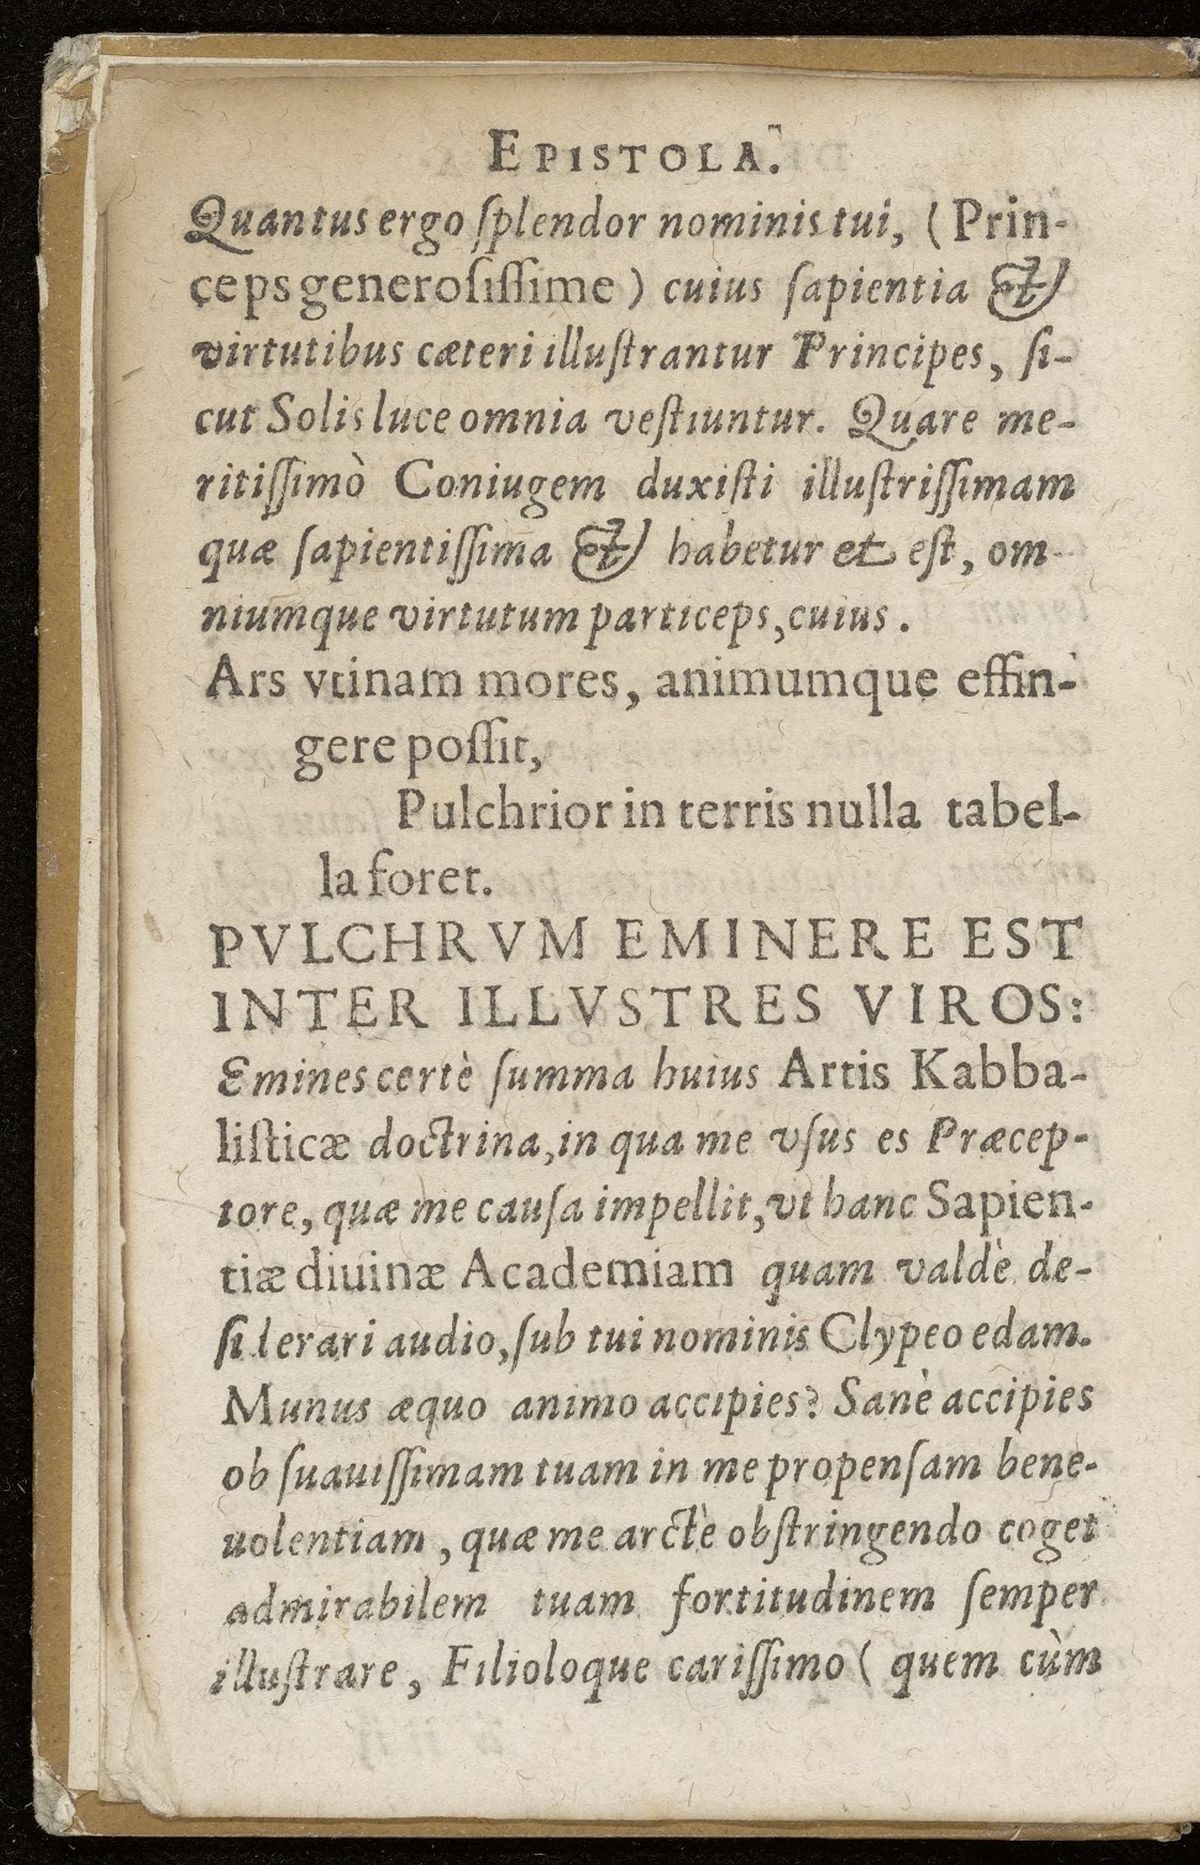 EPISTOLA.
Quantus ergo ſplendor nominis tui, (Prin-
ceps generoſiſſime) cuius ſapientia &
virtutibus cæteri illuſtrantur Principes, ſi-
cut Solis luce omnia veſtiuntur. Quare me-
ritiſſimò Coniugem duxiſti illuſtriſſimam
quæ ſapientiſſima & habetur et eſt, om-
niumque virtutum particeps, cuius.
Ars vtinam mores, animumque effin-
gere poſſit,
Pulchrior in terris nulla tabel-
la foret.
PVLCHRVM EMINERE EST
INTER ILLVSTRES VIROS:
Emines certè ſumma huius Artis Kabba-
liſticæ doctrina, in qua me vſus es Præcep-
tore, quæ me cauſa impellit, vt hanc Sapien-
tiæ diuinæ Academiam quam valdè de-
ſiderari audio, ſub tui nominis Clypeo edam.
Munus æquo animo accipies? Sanè accipies
ob ſuauiſſimam tuam in me propenſam bene-
uolentiam, quæ me arctè obſtringendo coget
admirabilem tuam fortitudinem ſemper
illuſtrare, Filioloque cariſſimo ( quem cùm